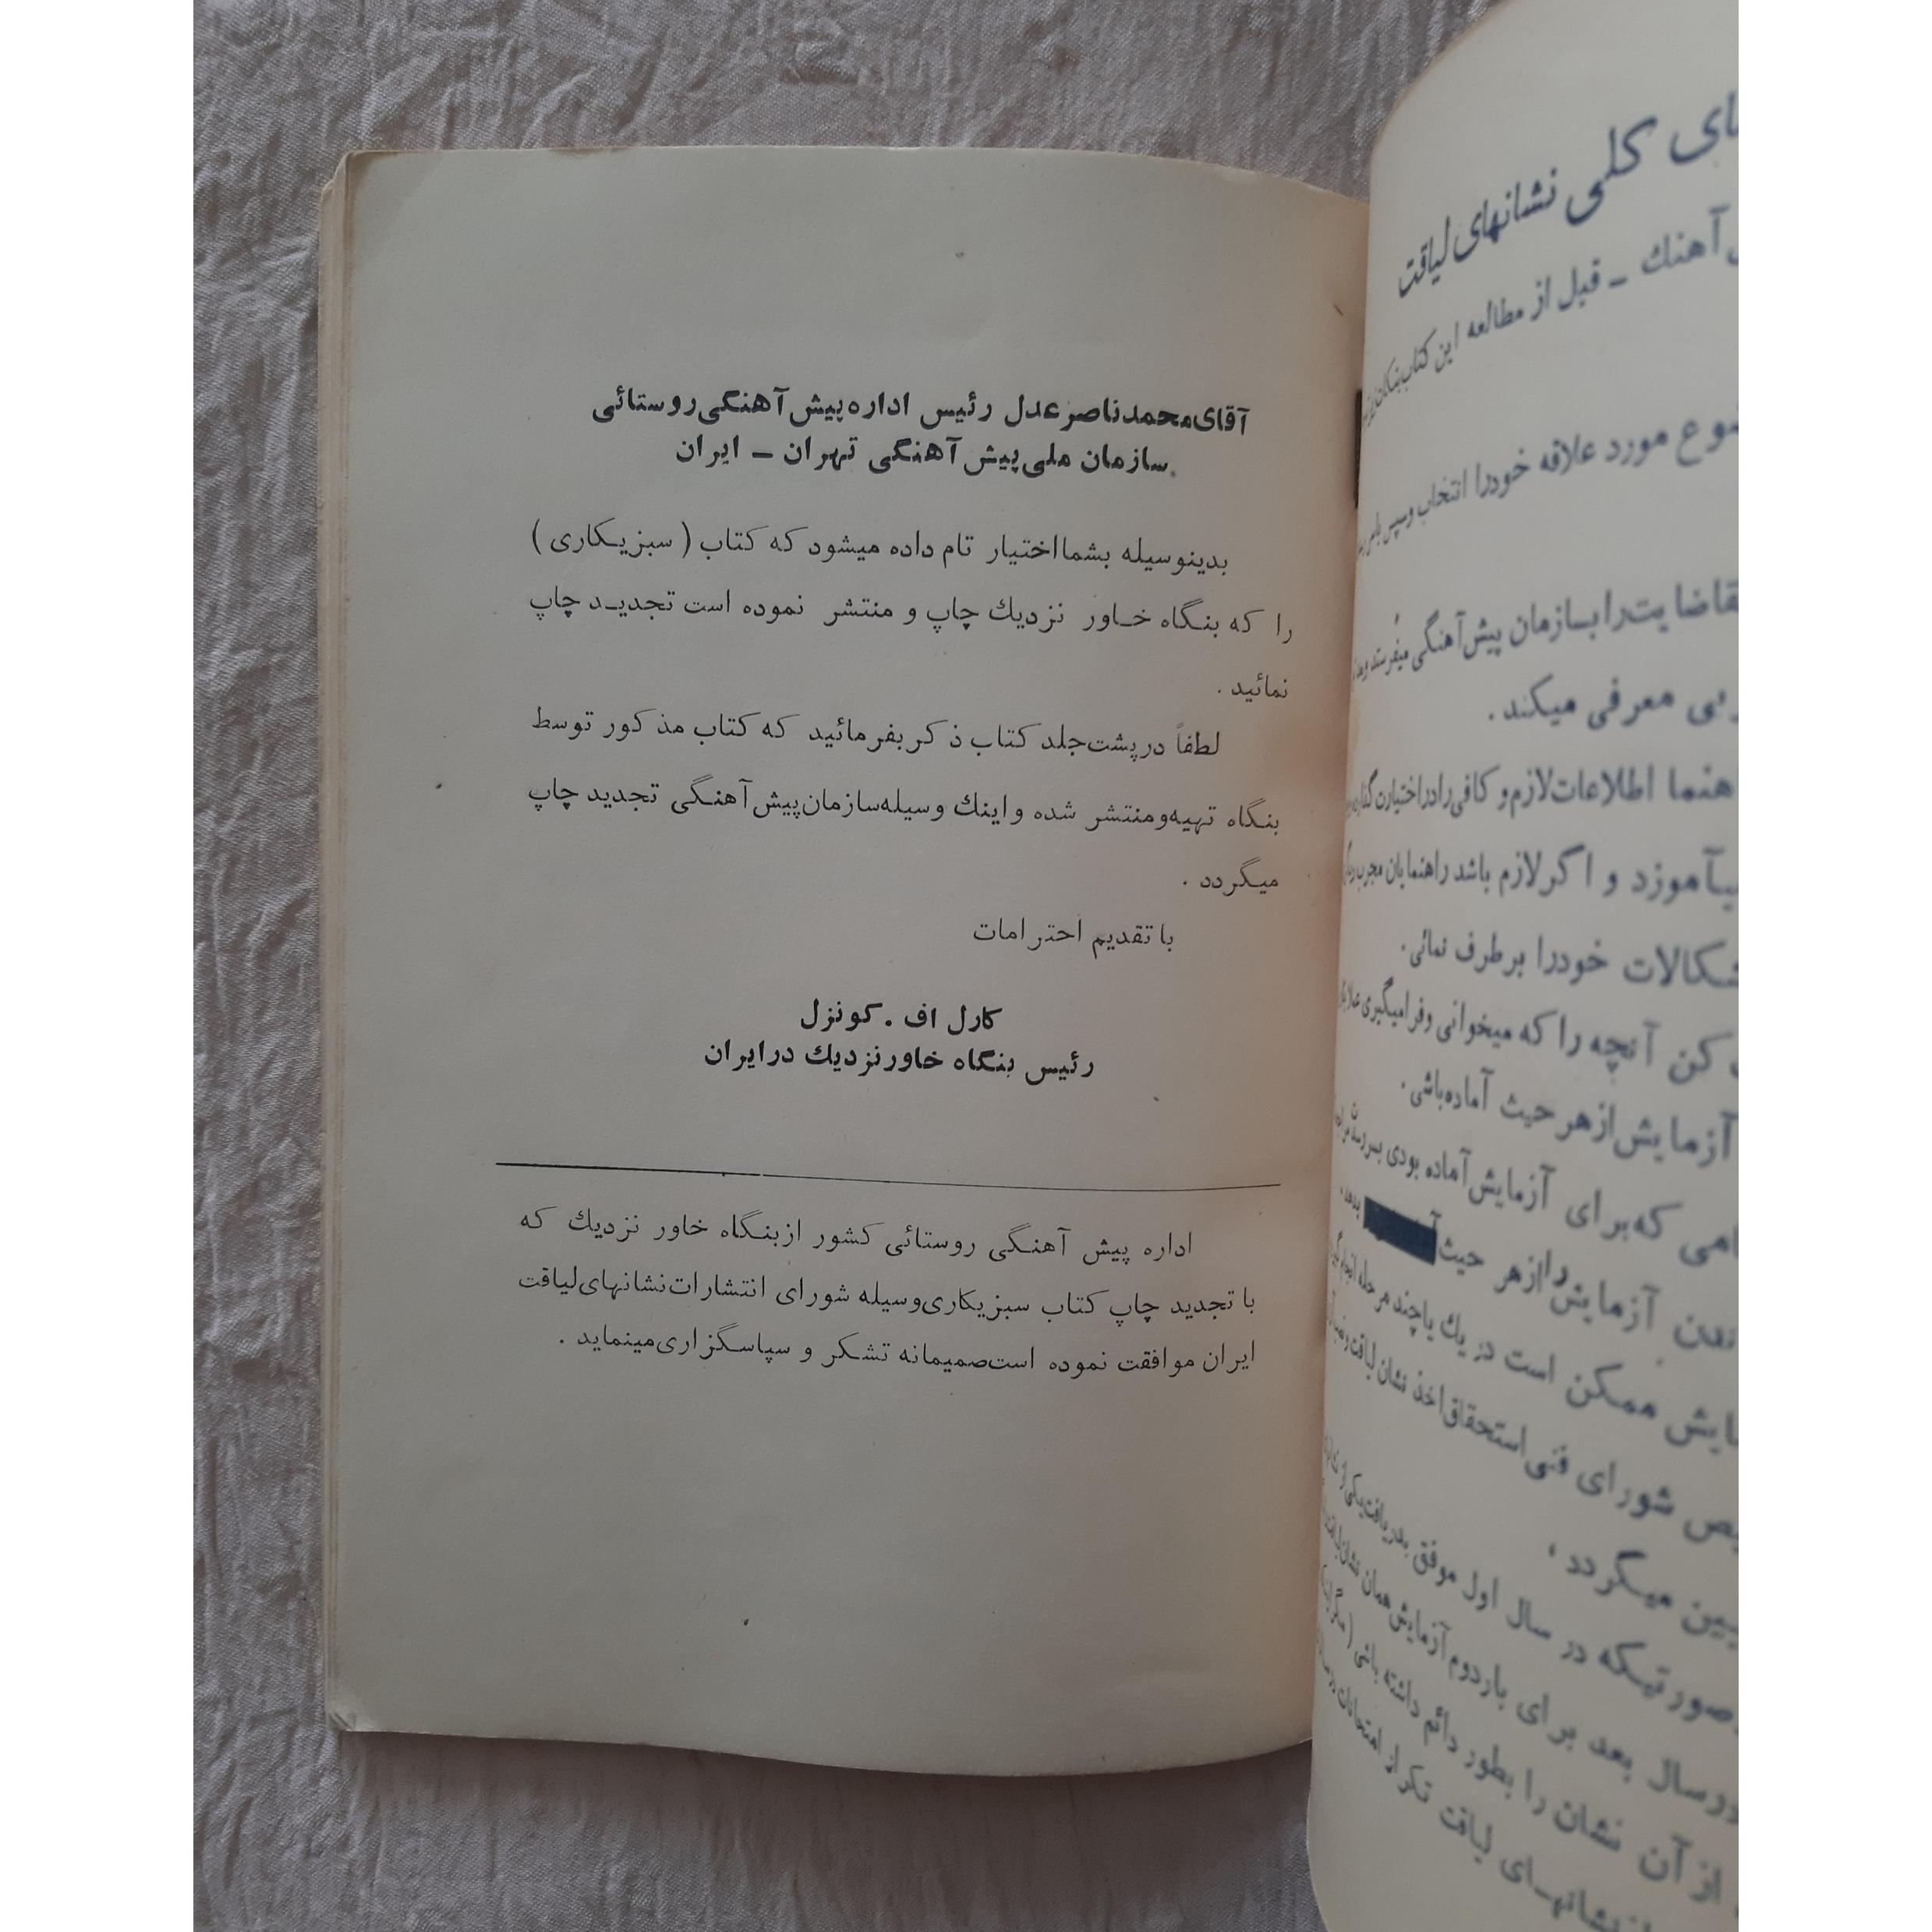 آقای محمد ناصر عدل رئیس اداره پیش آهنگی روستائی
سازمان ملی پیش آهنگی تهران – ایران
بدینوسیله بشما اختیار تام داده میشود که کتاب ( سبزیکاری )
را که بنگاه خاور نزدیك چاپ و منتشر نموده است تجدید چاپ
نمائید .
لطفاً در پشت جلد کتاب ذکر بفرمائید که کتاب مذکور توسط
بنگاه تهیه و منتشر شده و اینك وسیله سازمان پیش آهنگی تجدید چاپ
میگردد .
با تقدیم احترامات
کارل اف . کونزل
رئیس بنگاه خاور نزدیك در ایران
اداره پیش آهنگی روستائی کشور از بنگاه خاور نزدیك که
با تجدید چاپ کتاب سبزیکاری وسیله شورای انتشارات نشانهای لیاقت
ایران موافقت نموده است صمیمانه تشکر و سپاسگزاری مینماید .
کلی نشانهای لیاقت
آهنك – قبل از مطالعه این کتاب
مورد علاقه خود را انتخاب و سپس
را بسازمان پیش آهنگی میفرستد
معرفی میکند .
اطلاعات لازم و کافی را در اختیارت
و اگر لازم باشد راهنمایان مجرب
خود را برطرف نمائی .
کن آنچه را که میخوانی و فرا میگیری
آزمایش از هر حیث آماده باشی .
که برای آزمایش آماده بودی
آزمایش را از هر حیث بدهد .
ممکن است در یك یا چند مرحله انجام
شورای فنی استحقاق اخذ نشان لیاقت
میگردد .
در سال اول موفق بدریافت یکی از
سال بعد برای بار دوم آزمایش همان نشان
از آن نشان را بطور دائم داشته باشی (
لیاقت